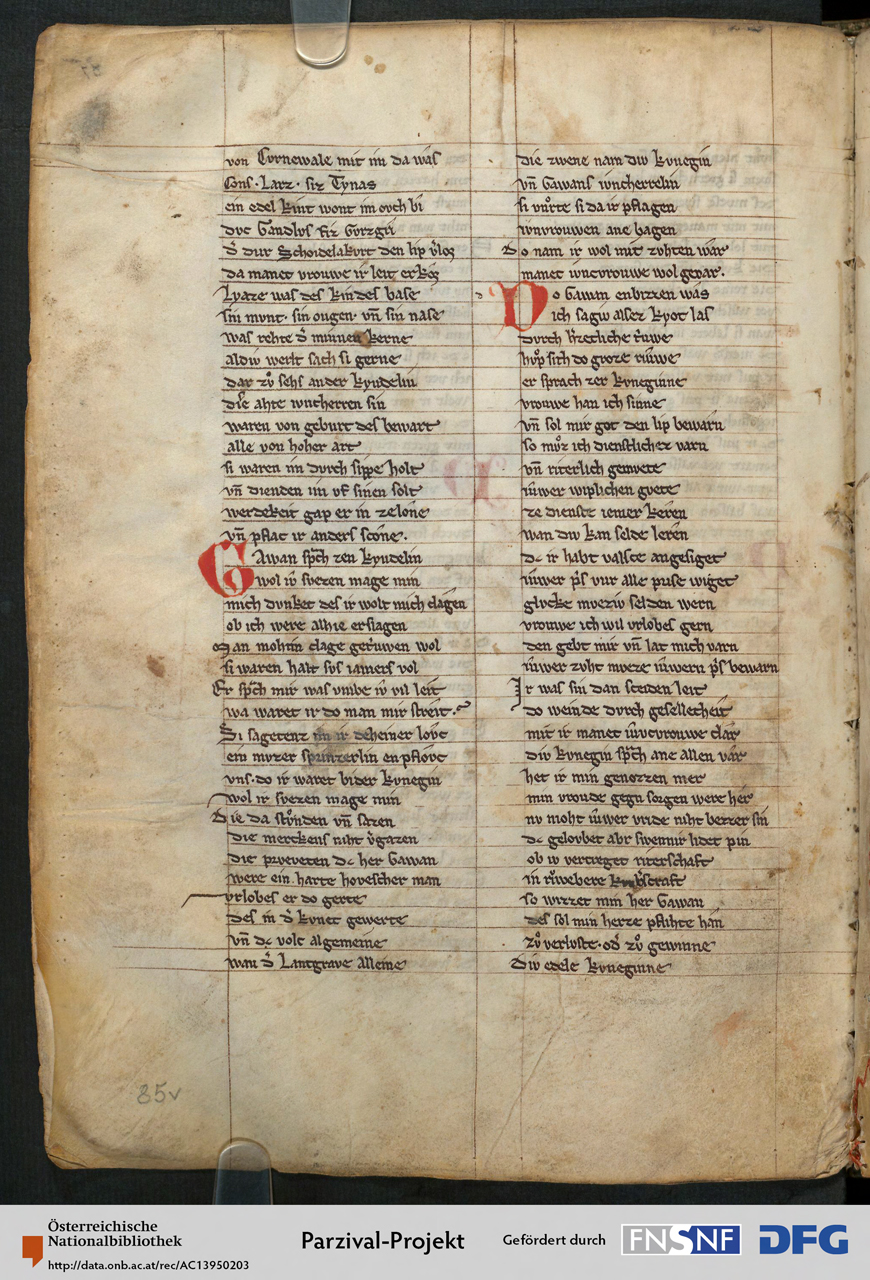 von Cornewale mit im da was
Cons. Larz. fiz Tynas
ein edel kint wont im ovch bi
duc Gandlvs fiz Gvrzgri
d̾ dur Schoidelakurt den lip v̾los
da manec vrouwe ir leit erkos
Lyaze was des kindes base
sin mvnt. sin ougen. vn̄ sin nase
was rehte d̾ minnen kerne
aldiv werlt sach si gerne
dar zvͦ sehs ander kyndelin
dise ahte ivncherren sin
waren von geburt des bewart
alle von hoher art
si waren im durch sippe holt
vn̄ dienden im vf sinen solt
werdekeit gap er in ze lone
vn̄ pflac ir anders scone.
Gawan sp̄ch zen kyndelin
wol iv svezen mage min
mich dvnket des ir wolt mich clagen
ob ich were alhie erslagen
Man mohtin clage getruwen wol
si waren halt svs iamers vol
Er sp̄ch mir was vmbe iv vil leit
wa waret ir do man mir streit.
Si sagetenz im ir deheiner lovc
ein mvzer sprinzerlin enpflovc
vns. do ir waret bider kvnegin
wol ir svezen mage min
Die da stvͦnden vn̄ sazen
die merckens niht v̾gazen
die prveveten dc her Gawan
were ein harte hovescher man
vrlobes er do gerte
des in d̾ kvnec gewerte
vn̄ dc volc algemeine
wan d̾ Lantgrave alleine
die zwene nam div kvnegin
vn̄ Gawans ivncherrelin
si vuͦrte si da ir pflagen
ivnvrouwen ane bagen
Do nam ir wol mit zvhten war
manec ivncvrouwe wol gevar.
Do Gawan enbizzen was
ich sagiv alsez kyot las
durch h̾zecliche triuwe
hvͦp sich do groze riuwe
er sprach zer kvneginne
vrouwe han ich sinne
vn̄ sol mir got den lip bewarn
so mvͦz ich dienstlichez varn
vn̄ riterlich gemvete
iuwer wiplichen gvete
ze dienste iemer keren
wan div kan selde leren
dc ir habt valsce angesiget
iuwer p̄s vur alle prise wiget
glvcke mvez iv selden wern
vrouwe ich wil vrlobes gern
den gebt mir vn̄ lat mich varn
iuwer zvht mveze iuwern p̄s bewarn
Ir was sin dan sceiden leit
do weinde durch gesellecheit
mit ir manec iuvcvrouwe clar
div kvnegin sp̄ch ane allen var
het ir min genozzen mer
min vroude gegn sorgen were her
nv moht iuwer vride niht bezzer sin
dc geloubet abr swennir lidet pin
ob iv vertreget riterschaft
in riuwebere kvmb̾s craft
so wizzet min her Gawan
des sol min herze pflihte han
zvͦ verlvste. od̾ zvͦ gewinne
Div edele kvneginne
85v
Österreichische
Nationalbibliothek
http://data.onb.ac.at/rec/AC13950203
Parzival-Projekt
Gefördert durch
FNSNF
DFG